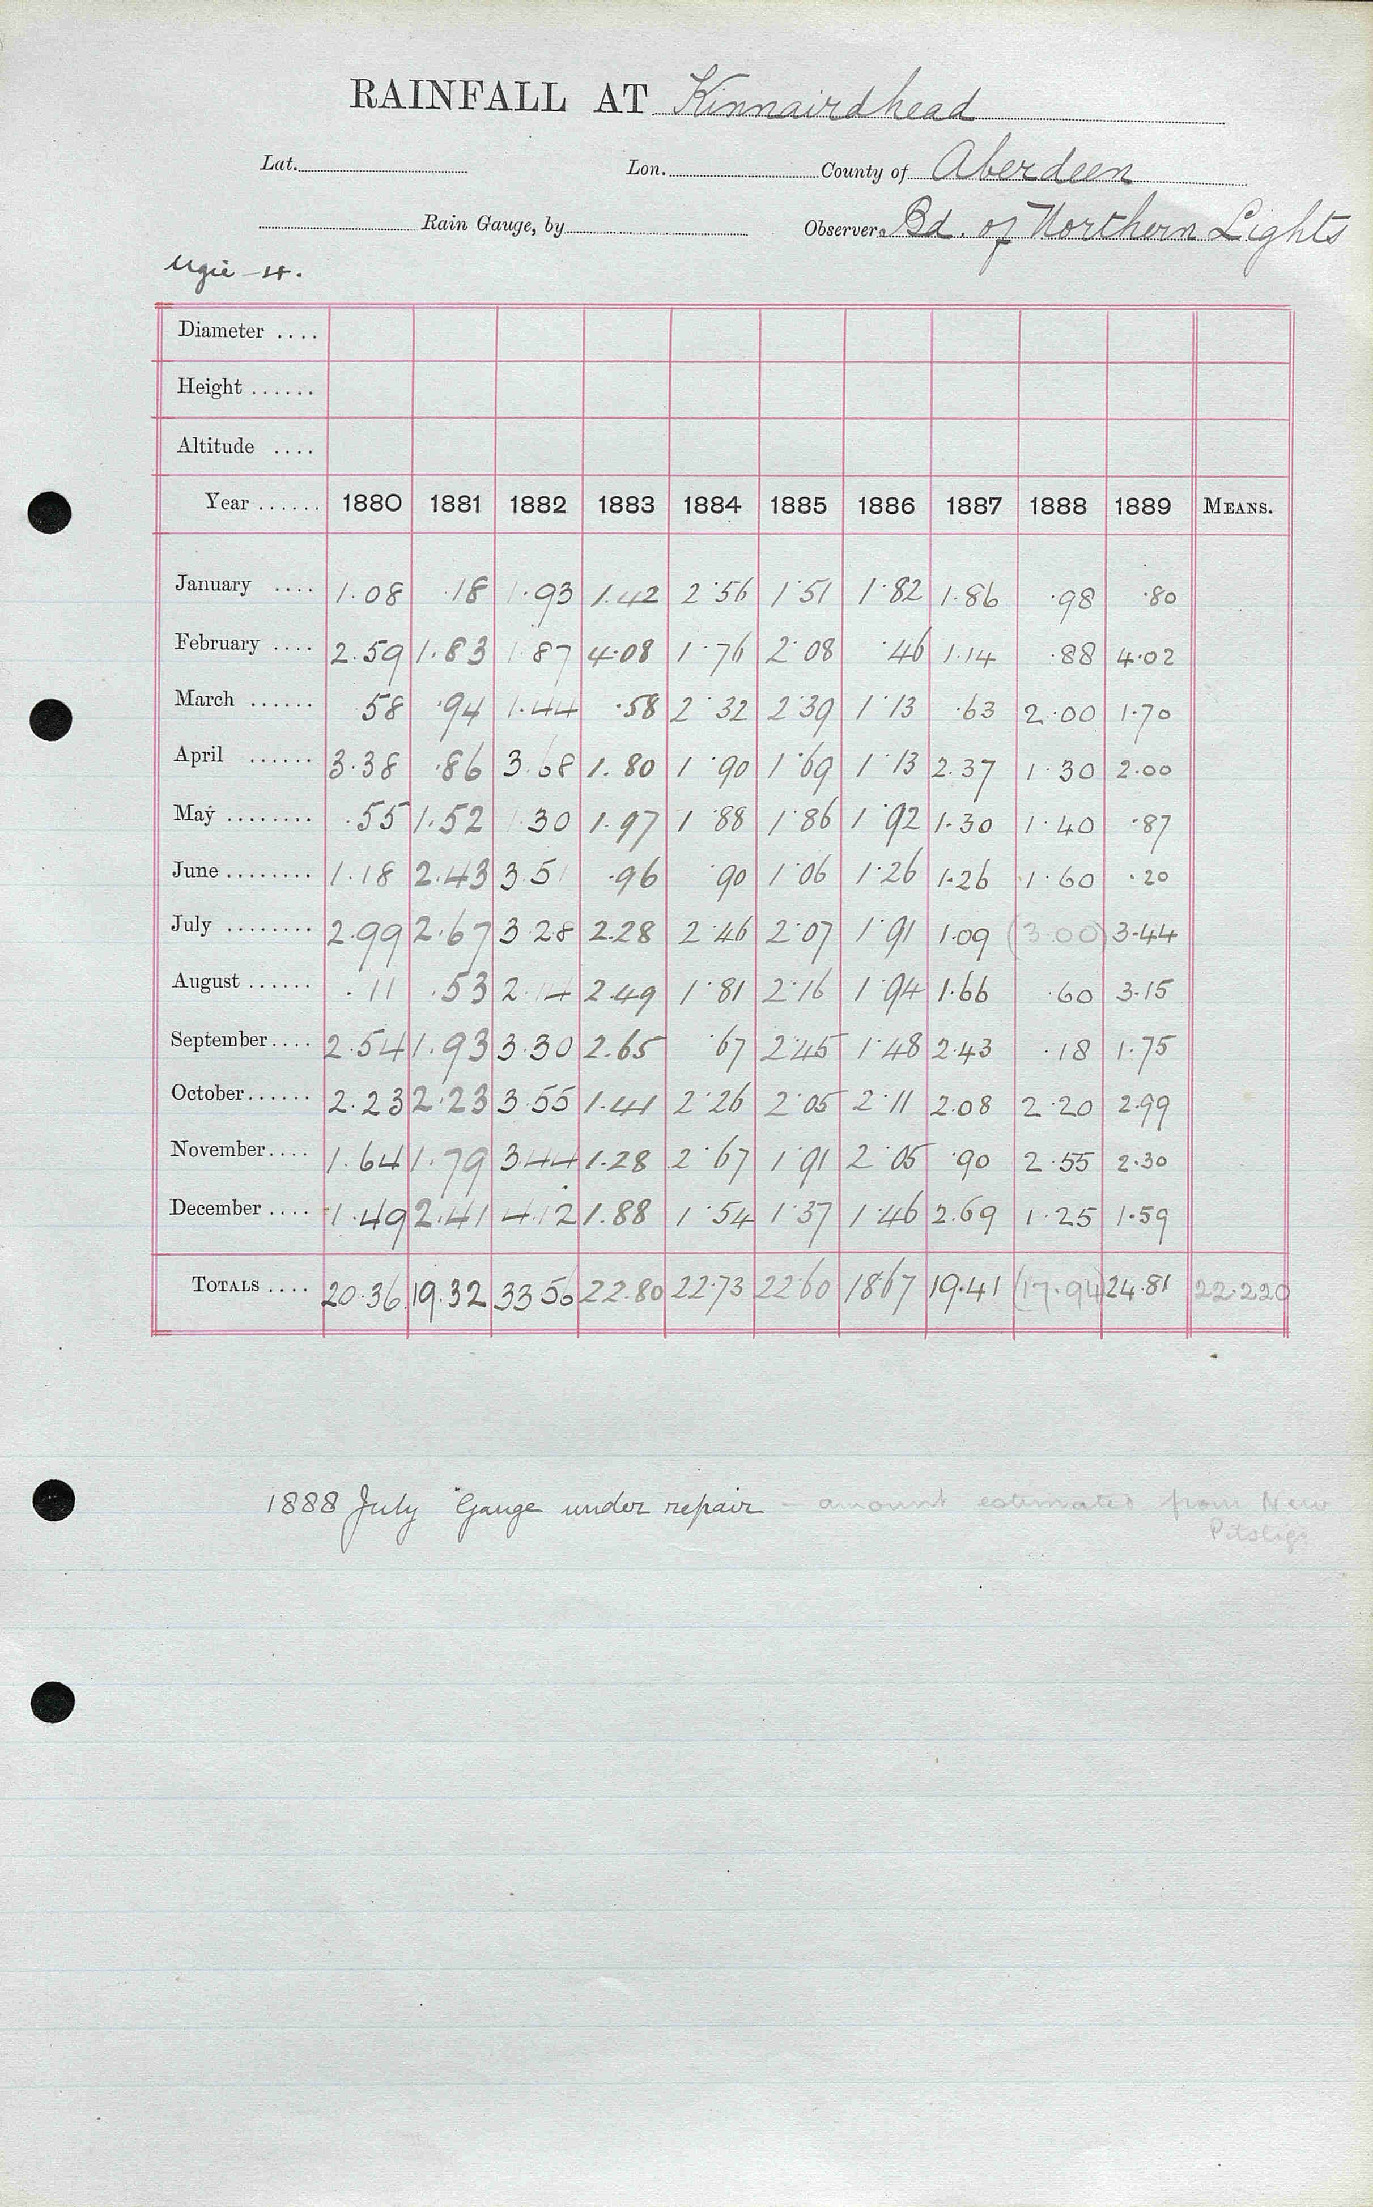 RAINFALL AT Kinnairdhead
Lat. Lon. County of Aberdeen
Rain Gauge, by Observers Bd. of Northern Lights
Ugie 4.
Diameter ....
Height ......
Altitude ....
Year ...... 1880 1881 1882 1883 1884 1885 1886 1887 1888 1889 MEANS.
January .... 1.08 .18 1.93 1.42 2.56 1.51 1.82 1.86 .98 .80
February .... 2.59 1.83 1.87 4.08 1.76 2.08 .46 1.14 .88 4.02
March ...... .58 .94 1.44 .58 2.32 2.39 1.13 .63 2.00 1.70
April ...... 3.38 .86 3.68 1.80 1.90 1.69 1.13 2.37 1.30 2.00
May ........ .55 1.52 1.30 1.97 1.88 1.86 1.92 1.30 1.40 .87
June ........ 1.18 2.43 3.51 .96 .90 1.06 1.26 1.26 1.60 .20
July ........ 2.99 2.67 3.28 2.28 2.46 2.07 1.91 1.09 (3.00) 3.44
August ...... .11 .53 2.14 2.49 1.81 2.16 1.94 1.66 .60 3.15
September.... 2.54 1.93 3.30 2.65 .67 2.45 1.48 2.43 .18 1.75
October...... 2.23 2.23 3.55 1.41 2.26 2.05 2.11 2.08 2.20 2.99
November.... 1.64 1.79 3.44 1.28 2.67 1.91 2.05 .90 2.55 2.30
December .... 1.49 2.41 4.12 1.88 1.54 1.37 1.46 2.69 1.25 1.59
TOTALS .... 20.36 19.32 33.56 22.80 22.73 22.60 18.67 19.41 (17.94) 24.81 22.220
1888 July Gauge under repair - amount estimated from New
Pitsligo